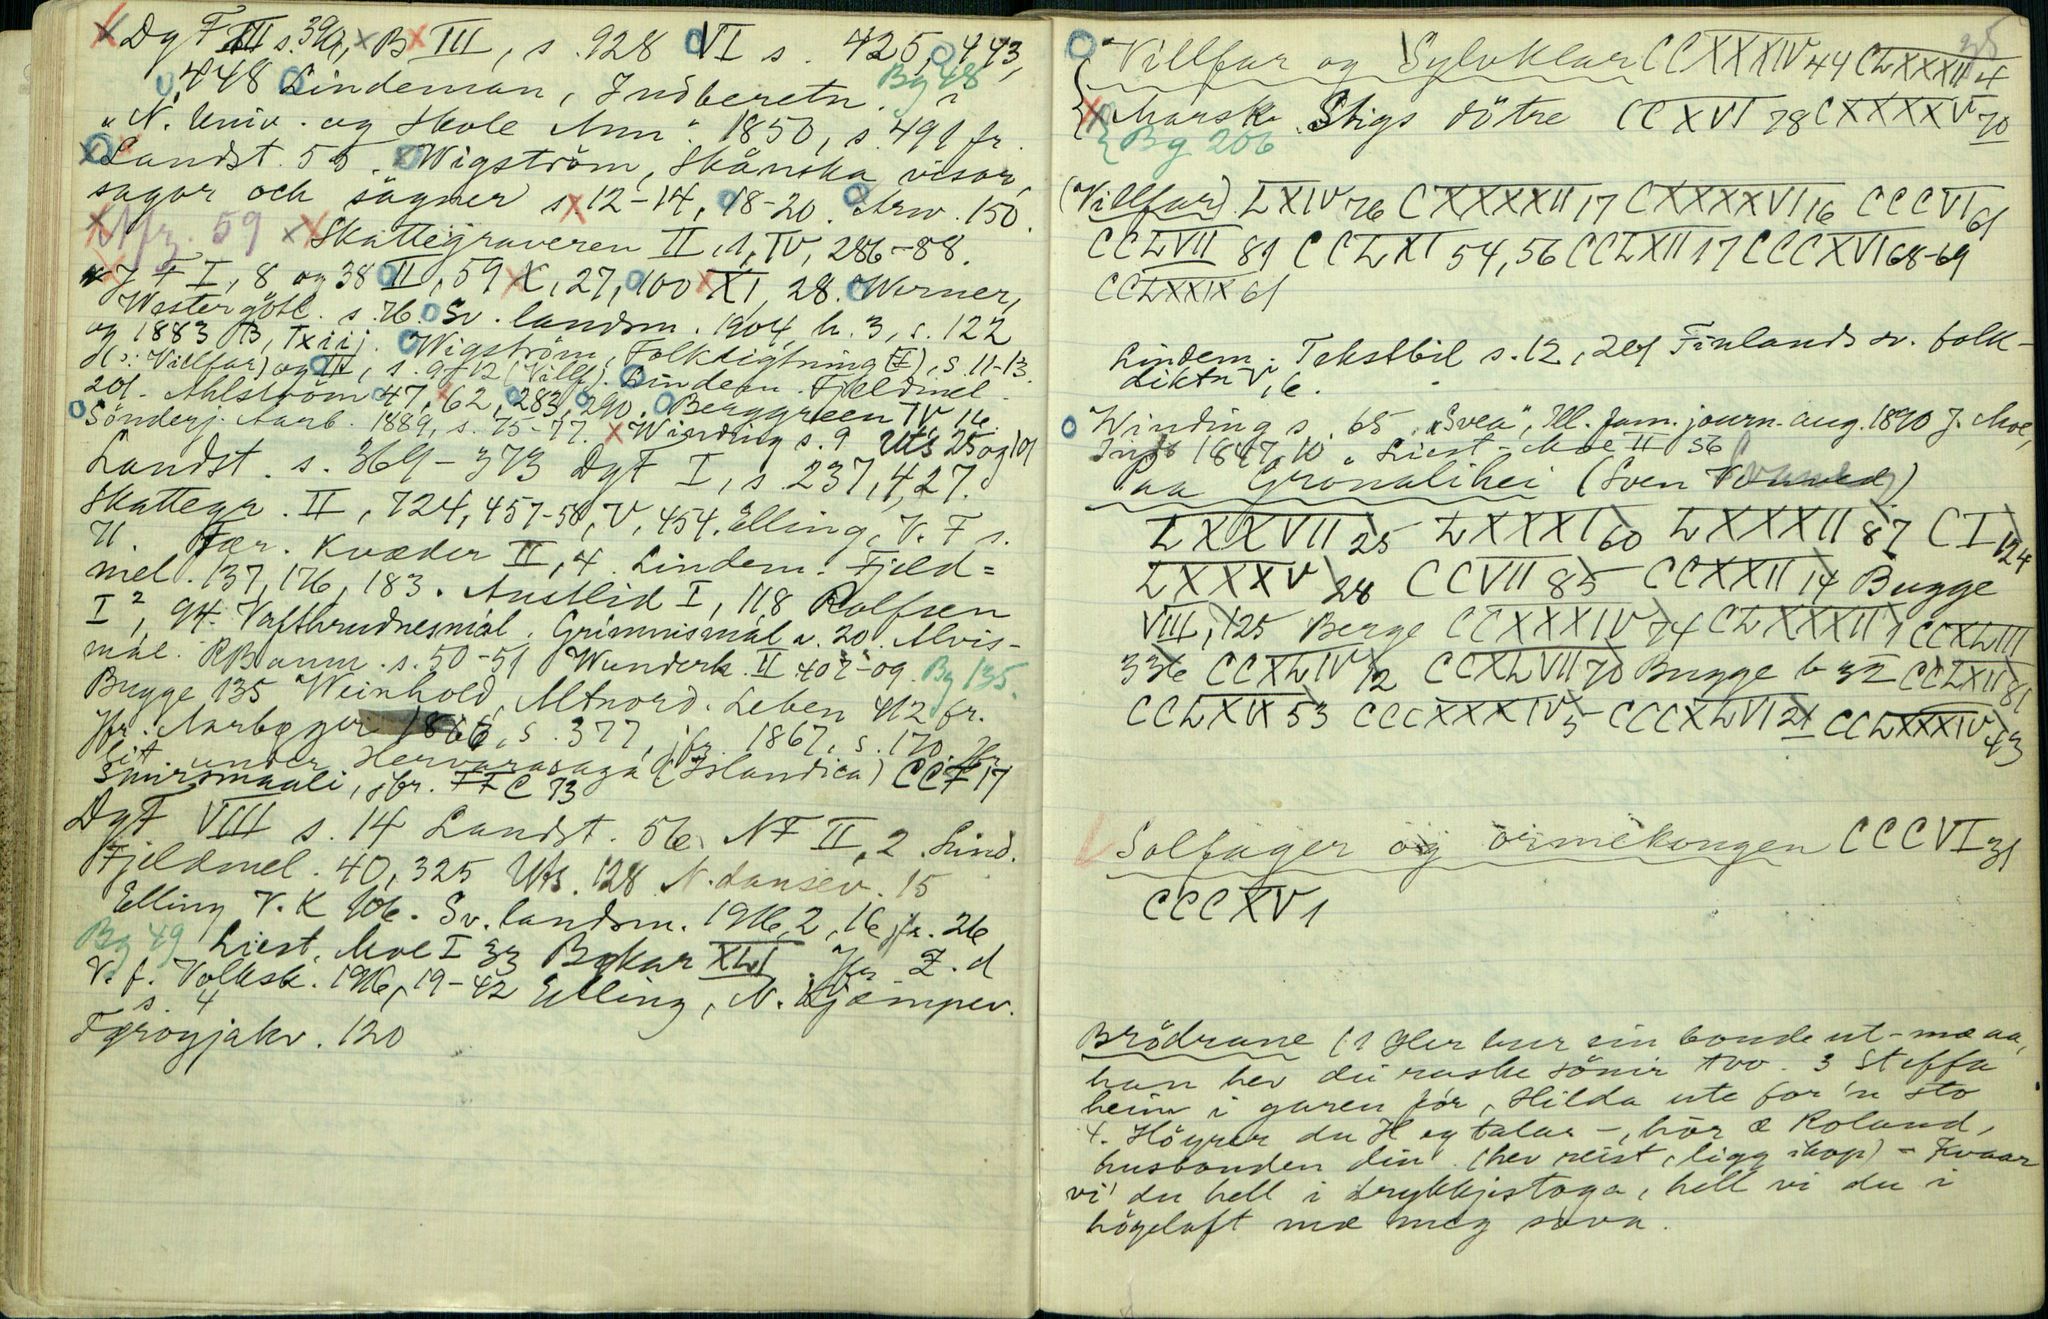 DgF III s. 391, B III, s. 928 VI s. 425, 443,
448 Lindeman, Indberetn. i Bg 48
"N. Univ. og Skole Ann". 1850, s. 491 fr.
Landst. 55. Wigström, Skånska visor,
sagor och sägner s. 12-14, 18-20. Arw. 150.
Jfr. 59 Skattegraveren II, 1, IV, 286-88.
J F I, 8 og 38 II, 59 X, 27, 100 XI, 28. Werner,
Westergötl. s. 76. Sv. landsm. 1904, h. 3, s. 122
og 1883 B, Txiij. Wigström, Folkdigtning (I), s. 11-13.
(Villfar) og II, s. 9-12 (Villf). Lindem. Fjeldmel.
201. Ahlström 47, 62, 283, 290. Berggreen IV, 16.
Sönderj. Aarb. 1889, s. 75-77. Winding s. 9 Uts 25 og 101
Landst. s. 369-373 DgF I, s. 237, 427.
Skattegr. II, 724, 457-58, V, 454. Elling, V. F s.
11. Fær. Kvæder II, 4. Lindem. Fjeld=
mel. 137, 176, 183. Austlid I, 118 Rolfsen
I², 94. Vafthrudnesmál. Grimnismál v. 20. Alvis-
mál. RBanm. s. 50-51 Wunderh. II 407-09. Bg 135.
Bugge 135 Weinhold, Altnord. Leben 412 fr.
Jfr. Aarbøger 1866, s. 377, jfr. 1867, s. 170. Jfr.
lit. under Hervararsaga (Islandica) CCF 17
Spursmaali, jfr. FFC 73
DgF VIII s. 14 Landst. 56. NF II, 2. Lind.
Fjeldmel. 40, 325 Uts. 128 N. dansev. 15
Elling V. K 106. Sv. landsm. 1916, 2, 16 jfr. 26
Bg 49 Liest. Moe I 33 Bøkar XLI. Jfr Z. d
V. f. Volksk. 1916, 19-42 Elling, N. Kjæmpev.
s. 4
Føroyjakv. 120
38
Villfar og Sylvklar CCXXXIV 44 CLXXXII 4
Marsk Stigs dötre CCXVI 78 CXXXXV 70
Bg 206
(Villfar). LXIV 76 CXXXXII 17 CXXXXVI 16 CCCVI 61
CCLVII 81 CCLXI 54, 56 CCLXII 17 CCCXVI 68-69
CCLXXIX 61
Lindem. Tekstbil s. 12, 201 Finlands sv. folk-
diktn V, 6.
Winding s. 65 "Svea", Ill. fam. journ. aug. 1890 J. Moe,
Indb 1847, 10. Liest-Moe II 56
Paa Grönalihei (Sven Vonved)
LXXVII 25 LXXXI 60 LXXXII 87 CI 124
LXXXV 28 CCVII 85 CCXXII 14 Bugge
VIII, 125 Berge CCXXXIV 74 CLXXXII 1 CCXLIII
336 CCXLIV 12 CCXLVII 70 Bugge b 32 CCLXII 81
CCLXIX 53 CCCXXXIV 5 CCCXLVI 21 CCLXXXIV 43
Solfager og ormekongen CCCVI 31
CCCXV 1
Brödrane (1 Her bur ein bonde ut-mæ aa,
han hev dei raske sönir tvo. 3 Steffa
heim i garen för, Hilda ute for 'n sto
4. Höyrer du H eg talar -, hör æ Roland,
husbonden din. (hev reist, ligg ihop) - Kvaar
vi' du hell i drykkjistoga, hell vi du i
högeloft mæ meg sova.